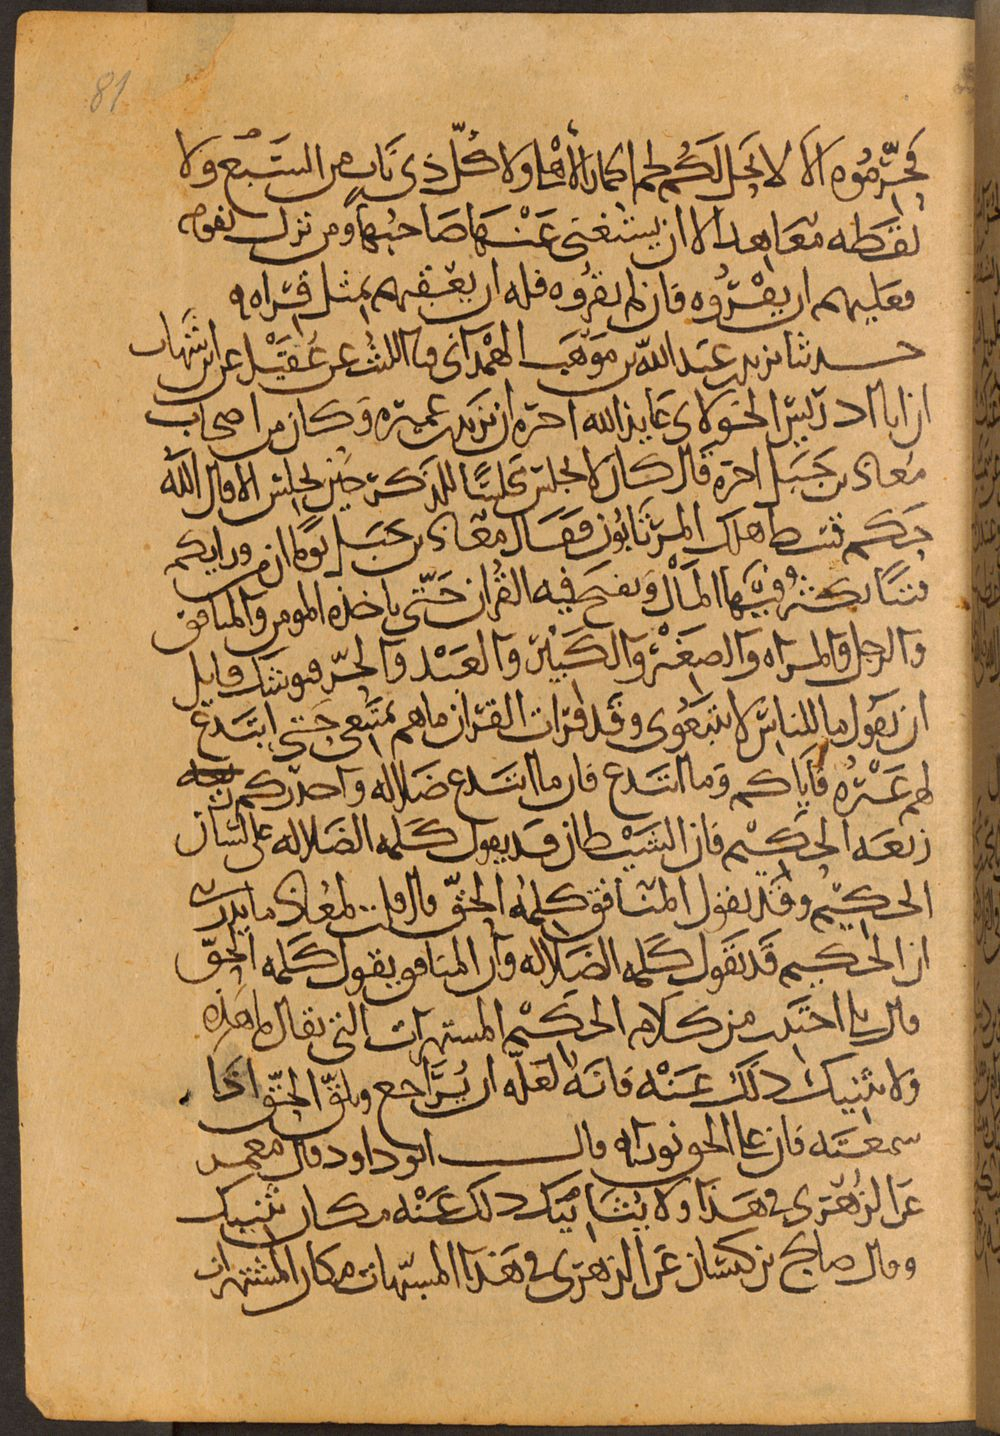 81
فحرموه الا لا يحل لكم لحم الحمار الأهلي ولا كل ذي ناب من السبع ولا
لقطه معاهد الا ان يستغني عنها صاحبها ومن نزل بقوم
فعليهم ان يقروه فان لم يقروه فله ان يعقبهم بمثل قراه
حدثنا يزيد بن عبد الله بن موهب الهمداني نا الليث عن عقيل عن ابن شهاب
ان ابا ادريس الخولاني عايذ الله اخبره ان يزيد بن عميره وكان من اصحاب
معاذ بن جبل اخبره قال كان لا يجلس مجلسا للذكر حين يجلس الا قال الله
حكم قسط هلك المرتابون فقال معاذ بن جبل يوما ان من ورايكم
فتنا يكثر فيها المال ويفتح فيه القران حتى ياخذه المومن والمنافق
والرجل والمراه والصغير والكبير والعبد والحر فيوشك قايل
ان يقول ما للناس لا يتبعوني وقد قرات القران ما هم بمتبعي حتى ابتدع
لهم غيره فاياكم وما ابتدع فان ما ابتدع ضلاله واحذركم
زيغه الحكيم فان الشيطان قد يقول كلمه الضلاله على لسان
الحكيم وقد يقول المنافق كلمه الحق قال قلت لمعاذ ما يدريني
ان الحكيم قد يقول كلمه الضلاله وان المنافق يقول كلمه الحق
قال بلى اجتنب من كلام الحكيم المشتهرات التي يقال لها ما هذه
ولا يثنيك ذلك عنه فانه لعله ان يراجع وتلق الحق اذا
سمعته فان على الحق نورا قال ابو داود قال معمر
عن الزهري في هذا ولا ينئينك ذلك عنه مكان يثنيك
وقال صالح بن كيسان عن الزهري في هذا المشبهات مكان المشتهرات